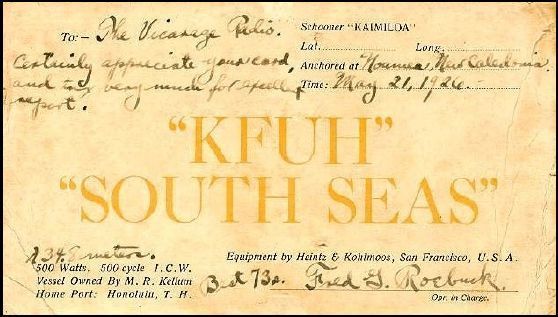 To:- The Vicarage Radio.
Schooner "KAIMILOA"
Lat. Long.
Certainly appreciate your card,
and tnx very much for excellent
report.
Anchored at Noumea, New Caledonia
Time: May 21, 1926.
"KFUH"
"SOUTH SEAS"
meters.
500 Watts. 500 cycle I.C.W.
Vessel Owned By M. R. Kellum
Home Port: Honolulu, T. H.
Equipment by Heintz & Kohlmoos, San Francisco, U. S. A.
Best 73s. Fred G. Roebuck.
Opr. in Charge.